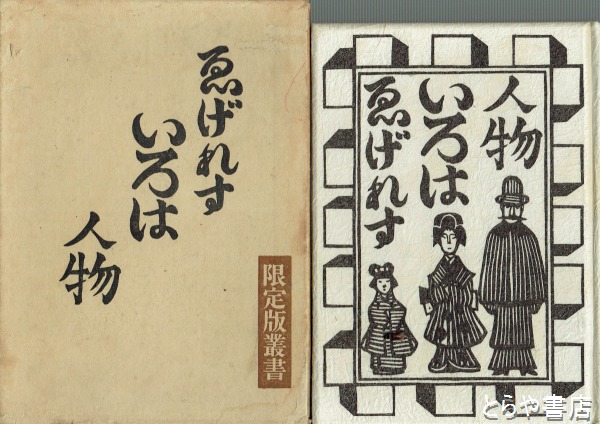 ゑげれす
いろは
人物
限定版叢書
人物
いろは
ゑげれす
とらや書店